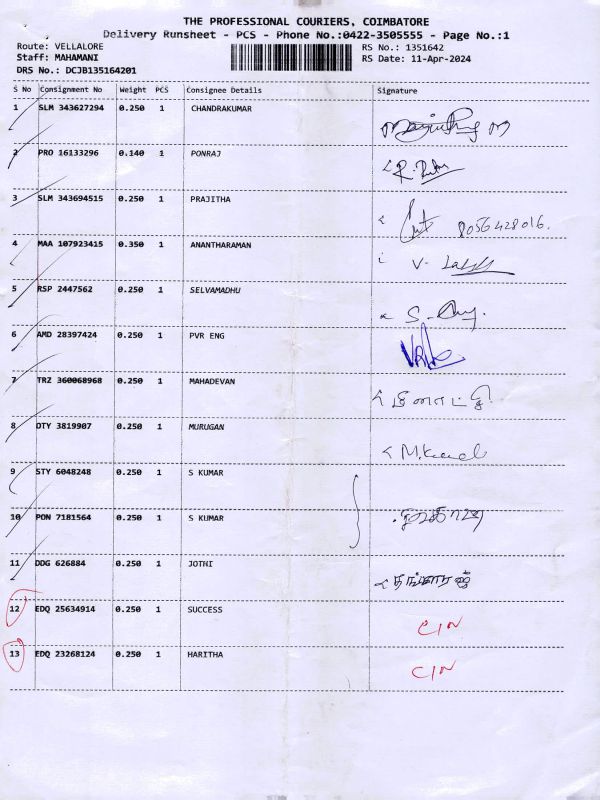 THE PROFESSIONAL COURIERS, COIMBATORE
Delivery Runsheet - PCS - Phone No.:0422-3505555 - Page No.:1
Route: VELLALORE RS No.: 1351642
Staff: MAHAMANI RS Date: 11-Apr-2024
DRS No.: DCJB135164201
S No Consignment No Weight PCS Consignee Details Signature
1 SLM 343627294 0.250 1 CHANDRAKUMAR
2 PRO 16133296 0.140 1 PONRAJ
3 SLM 343694515 0.250 1 PRAJITHA 8056428016.
4 MAA 107923415 0.350 1 ANANTHARAMAN
5 RSP 2447562 0.250 1 SELVAMADHU
6 AMD 28397424 0.250 1 PVR ENG
7 TRZ 360068968 0.250 1 MAHADEVAN
8 OTY 3819907 0.250 1 MURUGAN
9 STY 6048248 0.250 1 S KUMAR
10 PON 7181564 0.250 1 S KUMAR
11 DDG 626884 0.250 1 JOTHI
12 EDQ 25634914 0.250 1 SUCCESS CIN
13 EDQ 23268124 0.250 1 HARITHA CIN